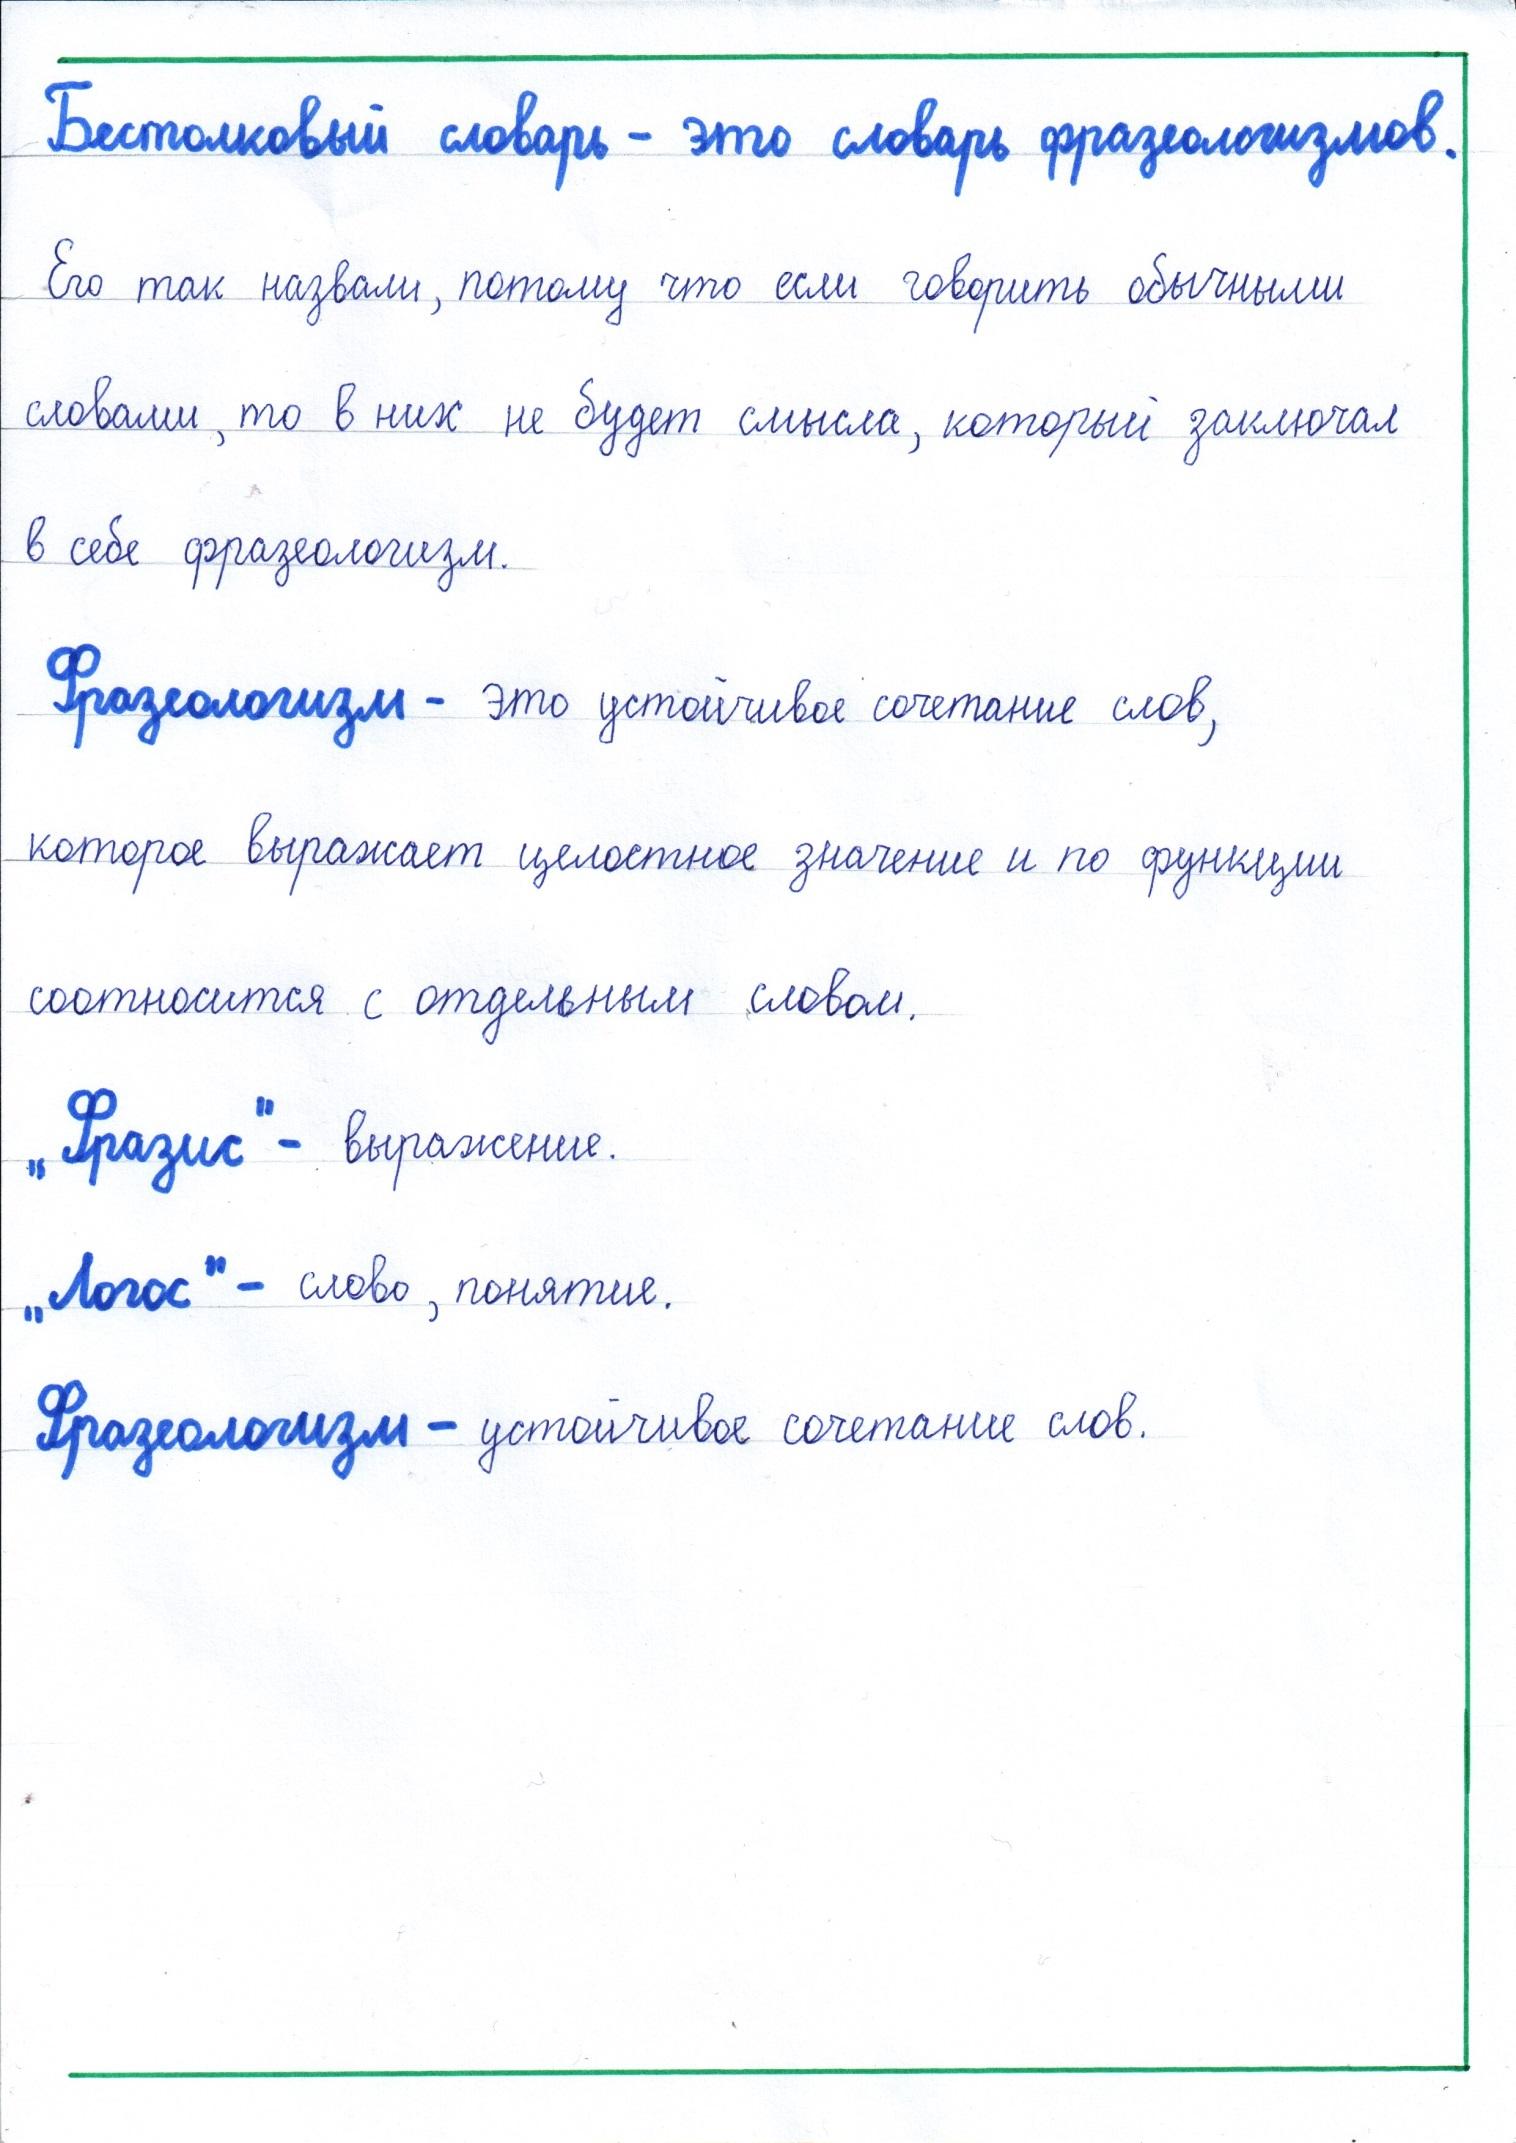 Бестолковый словарь – это словарь фразеологизмов.
Его так назвали, потому что если говорить обычными
словами, то в них не будет смысла, который заключал
в себе фразеологизм.
Фразеологизм – это устойчивое сочетание слов,
которое выражает целостное значение и по функции
соотносится с отдельным словом.
„Фразис" – выражение.
„Логос" – слово, понятие.
Фразеологизм – устойчивое сочетание слов.